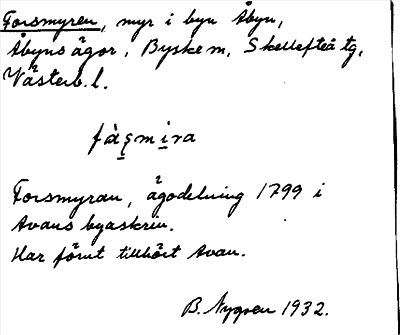 Forsmyren, myr i byn Åbyn,
Åbyns ägor, Byske sn, Skellefteå tg,
Västerb. l.
fàʂmira
Forsmyran, ägodelning 1799 i
Avans byaskrin.
Har förut tillhört Avan.
B. Nygren 1932.